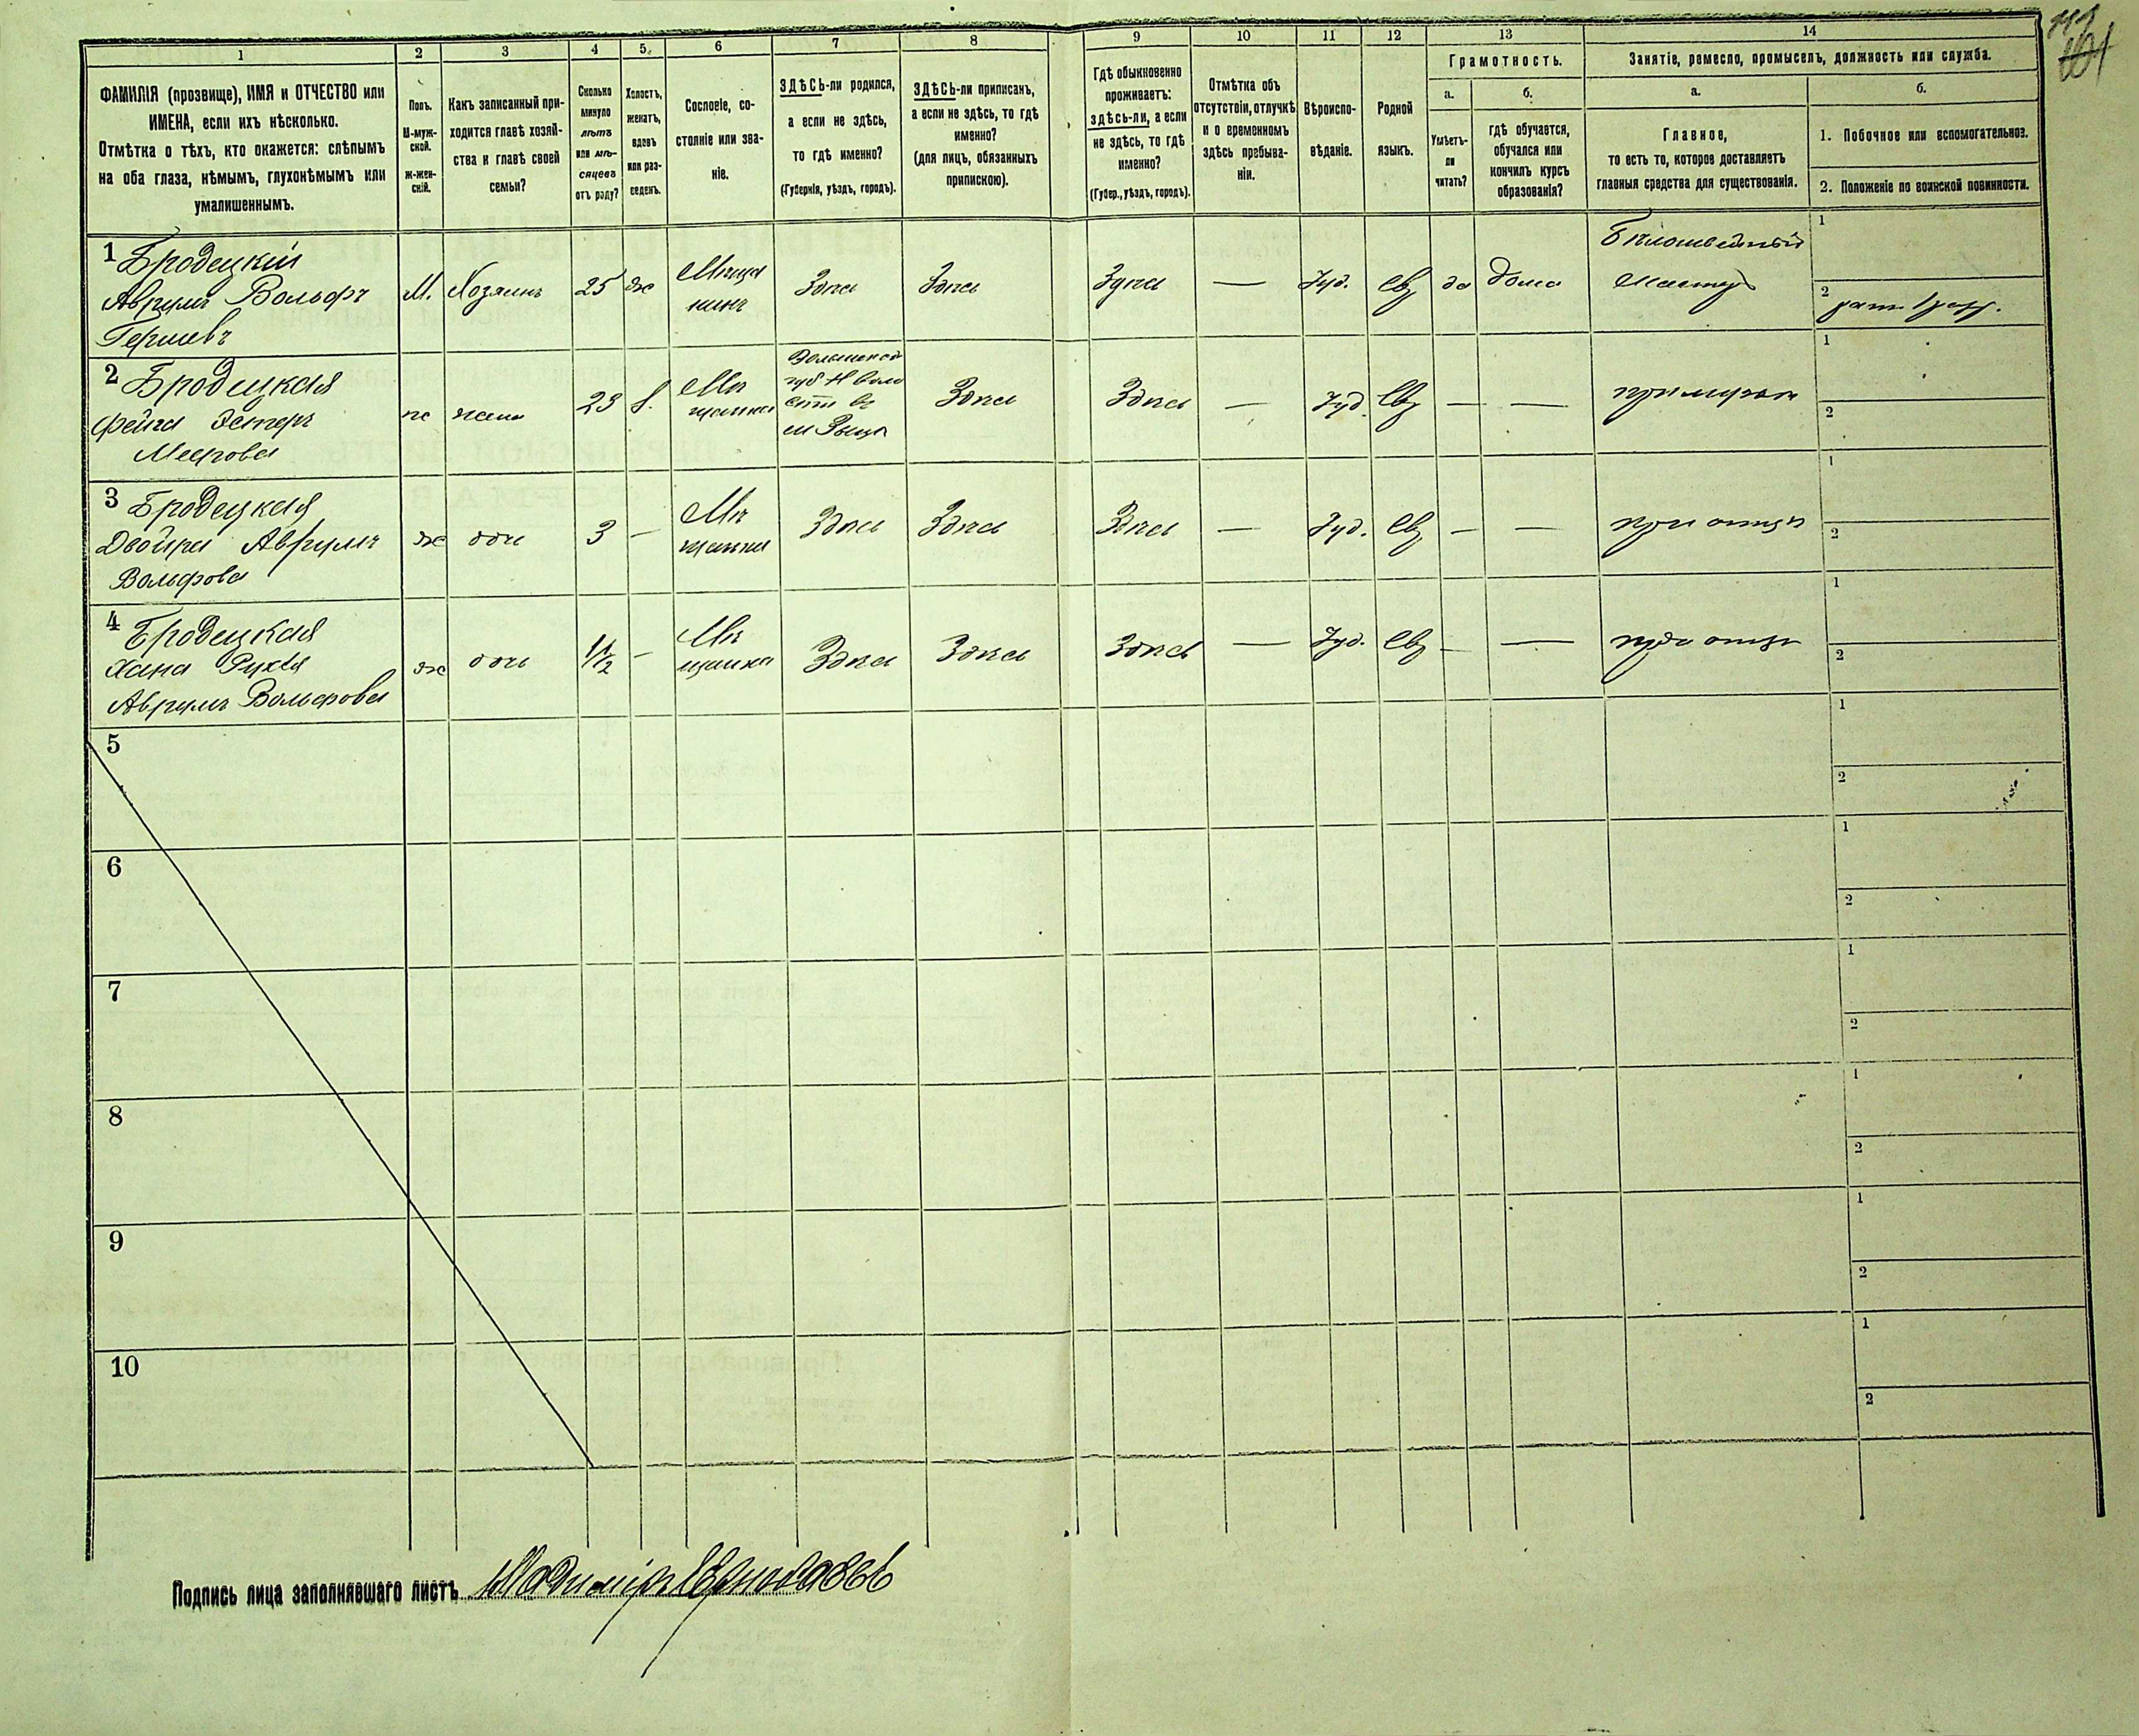 1 2 3 4 5. 6 7 8 9 10 11 12 13 14
ФАМИЛІЯ (прозвище), ИМЯ и ОТЧЕСТВО или
ИМЕНА, если ихъ нѣсколько.
Отмѣтка о тѣхъ, кто окажется: слѣпымъ
на оба глаза, нѣмымъ, глухонѣмымъ или
умалишеннымъ.
Полъ.
М-муж-
ской.
ж-жен-
скій.
Какъ записанный при-
ходится главѣ хозяй-
ства и главѣ своей
семьи?
Сколько
минуло
лѣтъ
или мѣ-
сяцевъ
отъ роду?
Холостъ,
женатъ,
вдовъ
или раз-
веденъ.
Сословіе, со-
стояніе или зва-
ніе.
ЗДѢСЬ-ли родился,
а если не здѣсь,
то гдѣ именно?
(Губернія, уѣздъ, городъ).
ЗДѢСЬ-ли приписанъ,
а если не здѣсь, то гдѣ
именно?
(для лицъ, обязанныхъ
припискою).
Гдѣ обыкновенно
проживаетъ:
здѣсь-ли, а если
не здѣсь, то гдѣ
именно?
(Губер., уѣздъ, городъ).
Отмѣтка объ
отсутствіи, отлучкѣ
и о временномъ
здѣсь пребыва-
ніи.
Вѣроиспо-
вѣданіе.
Родной
языкъ.
Грамотность.
а.
Умѣетъ-
ли
читать?
б.
гдѣ обучается,
обучался или
кончилъ курсъ
образованія?
Занятіе, ремесло, промыселъ, должность или служба.
а.
Главное,
то есть то, которое доставляетъ
главныя средства для существованія.
б.
1. Побочное или вспомогательное.
2. Положеніе по воинской повинности.
1 Бродецкій
Аврумъ Вольфъ
Гершевъ
М.
Хозяинъ
25
ж
Мѣща
нинъ
Здѣсь
Здѣсь
Здѣсь
—
Іуд.
Евр
да
дома
Бѣлошвейный
мастеръ
1
2
ратн. 1 разр.
2 Бродецкая
Фейга Эстеръ
Меерова
ж
жена
23
з.
Мѣ
щанка
Волынской
губ
Здѣсь
Здѣсь
—
Іуд.
Евр
—
—
при мужѣ
1
2
3 Бродецкая
Двойра Аврумъ
Вольфова
ж
дочь
3
—
Мѣ
щанка
Здѣсь
Здѣсь
Здѣсь
—
Іуд.
Евр
—
—
при отцѣ
1
2
4 Бродецкая
Хана Рухля
Аврумъ Вольфова
ж
дочь
1 1/2
—
Мѣ
щанка
Здѣсь
Здѣсь
Здѣсь
—
Іуд.
Евр
—
—
при отцѣ
1
2
5
1
2
6
1
2
7
1
2
8
1
2
9
1
2
10
1
2
Подпись лица заполнявшаго листъ